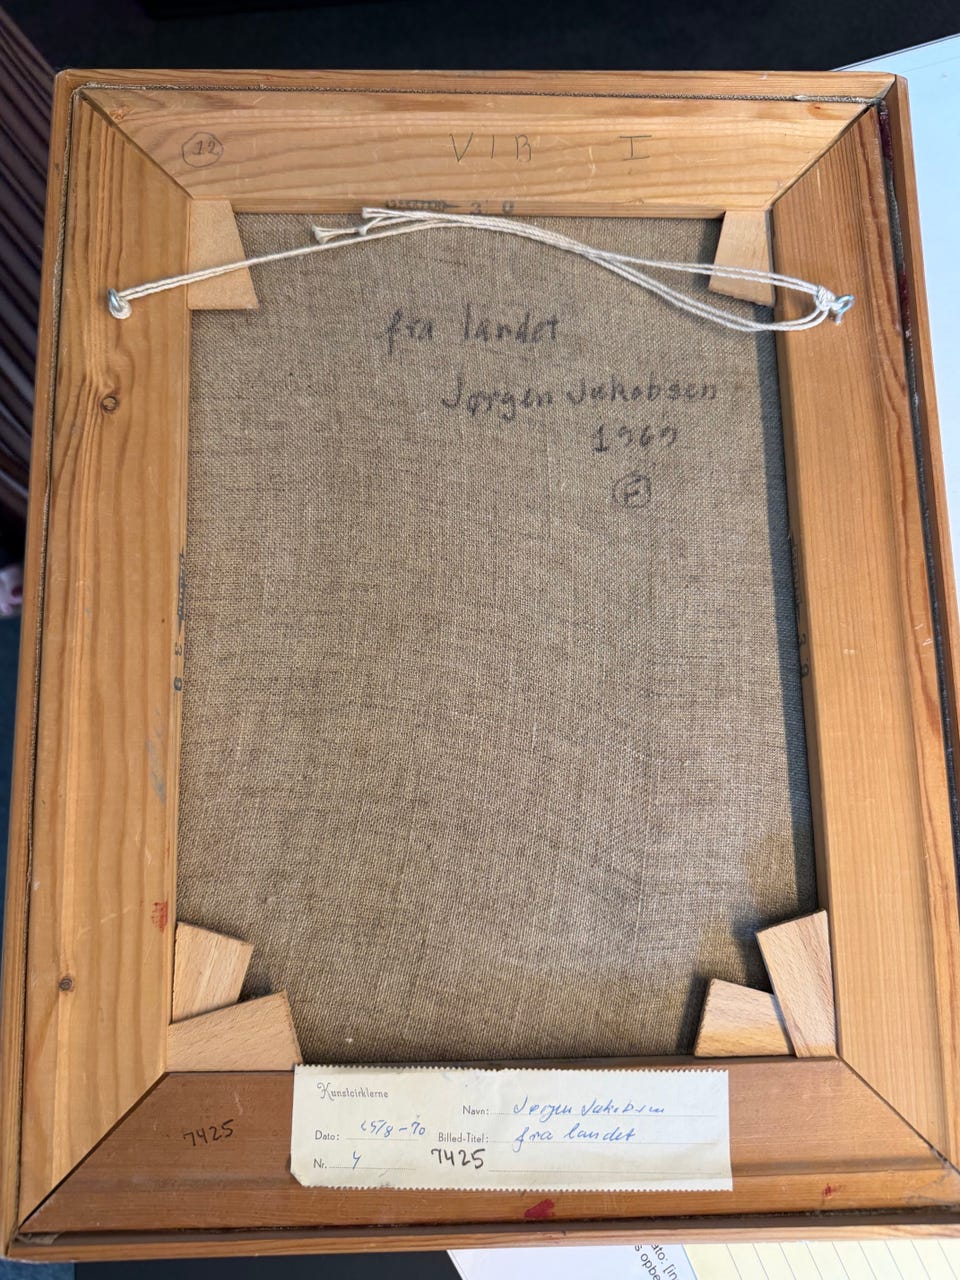 12
VIR I
30
fra landet
Jørgen Jakobsen
1969
F
30
30
7425
Kunstcirklerne
Navn: Jørgen Jakobsen
Dato: 25/8-70 Billed-Titel: fra landet
Nr. 4 7425